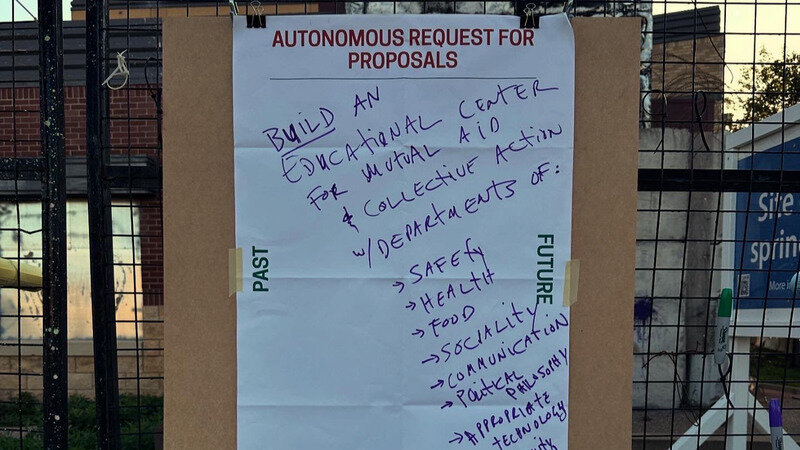 AUTONOMOUS REQUEST FOR
PROPOSALS
BUILD AN
EDUCATIONAL CENTER
FOR MUTUAL AID
& COLLECTIVE ACTION
w/DEPARTMENTS OF:
→ SAFETY
→ HEALTH
→ FOOD
→ SOCIALITY
→ COMMUNICATION
→ POLITICAL
PHILOSOPHY
→ APPROPRIATE
TECHNOLOGY
PAST
FUTURE
Site
sprin